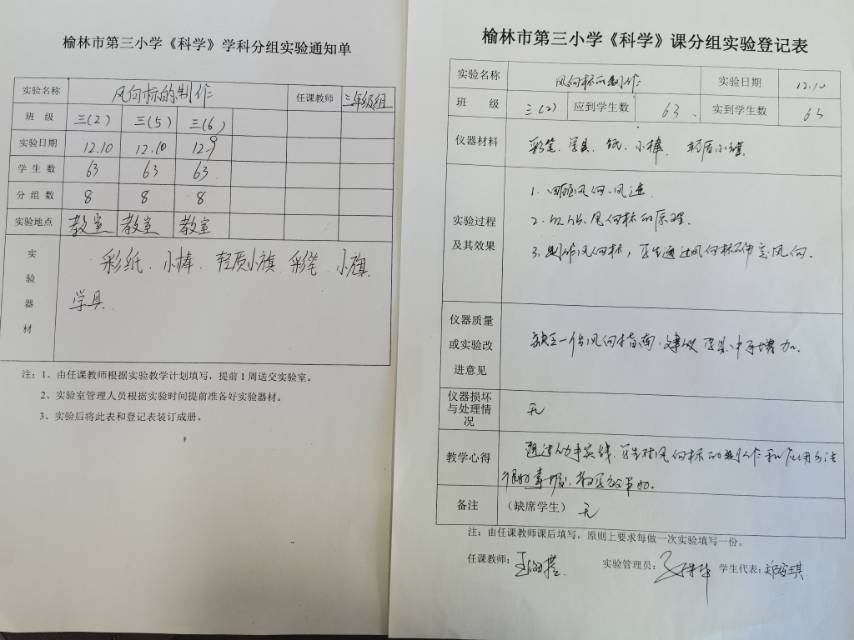 榆林市第三小学《科学》学科分组实验通知单
实验名称 风向标的制作 任课教师 三年级组
班 级 三(2) 三(5) 三(6)
实验日期 12.10 12.10 12.9
学 生 数 63 63 63
分 组 数 8 8 8
实验地点 教室 教室 教室
实验器材 彩纸、小棒、轻质小旗 彩笔 小旗
学具
注：1、由任课教师根据实验教学计划填写，提前1周送交实验室。
2、实验室管理人员根据实验时间提前准备好实验器材。
3、实验后将此表和登记表装订成册。
榆林市第三小学《科学》课分组实验登记表
实验名称 风向标的制作 实验日期 12.10
班 级 三(2) 应到学生数 63、 实到学生数 63
仪器材料 彩笔、学具、纸、小棒、轻质小旗
实验过程及其效果
1. 回顾风向、风速
2. 风向标的原理.
3. 制作风向标，学生通过风向标风向.
仪器质量或实验改进意见 一份风向指南，建议增加.
仪器损坏与处理情况 无
教学心得 通过动手实践，学生对风向标的制作和应用方法
备注 （缺席学生） 无
注：由任课教师课后填写，原则上要求每做一次实验填写一份。
任课教师： 实验管理员： 学生代表：